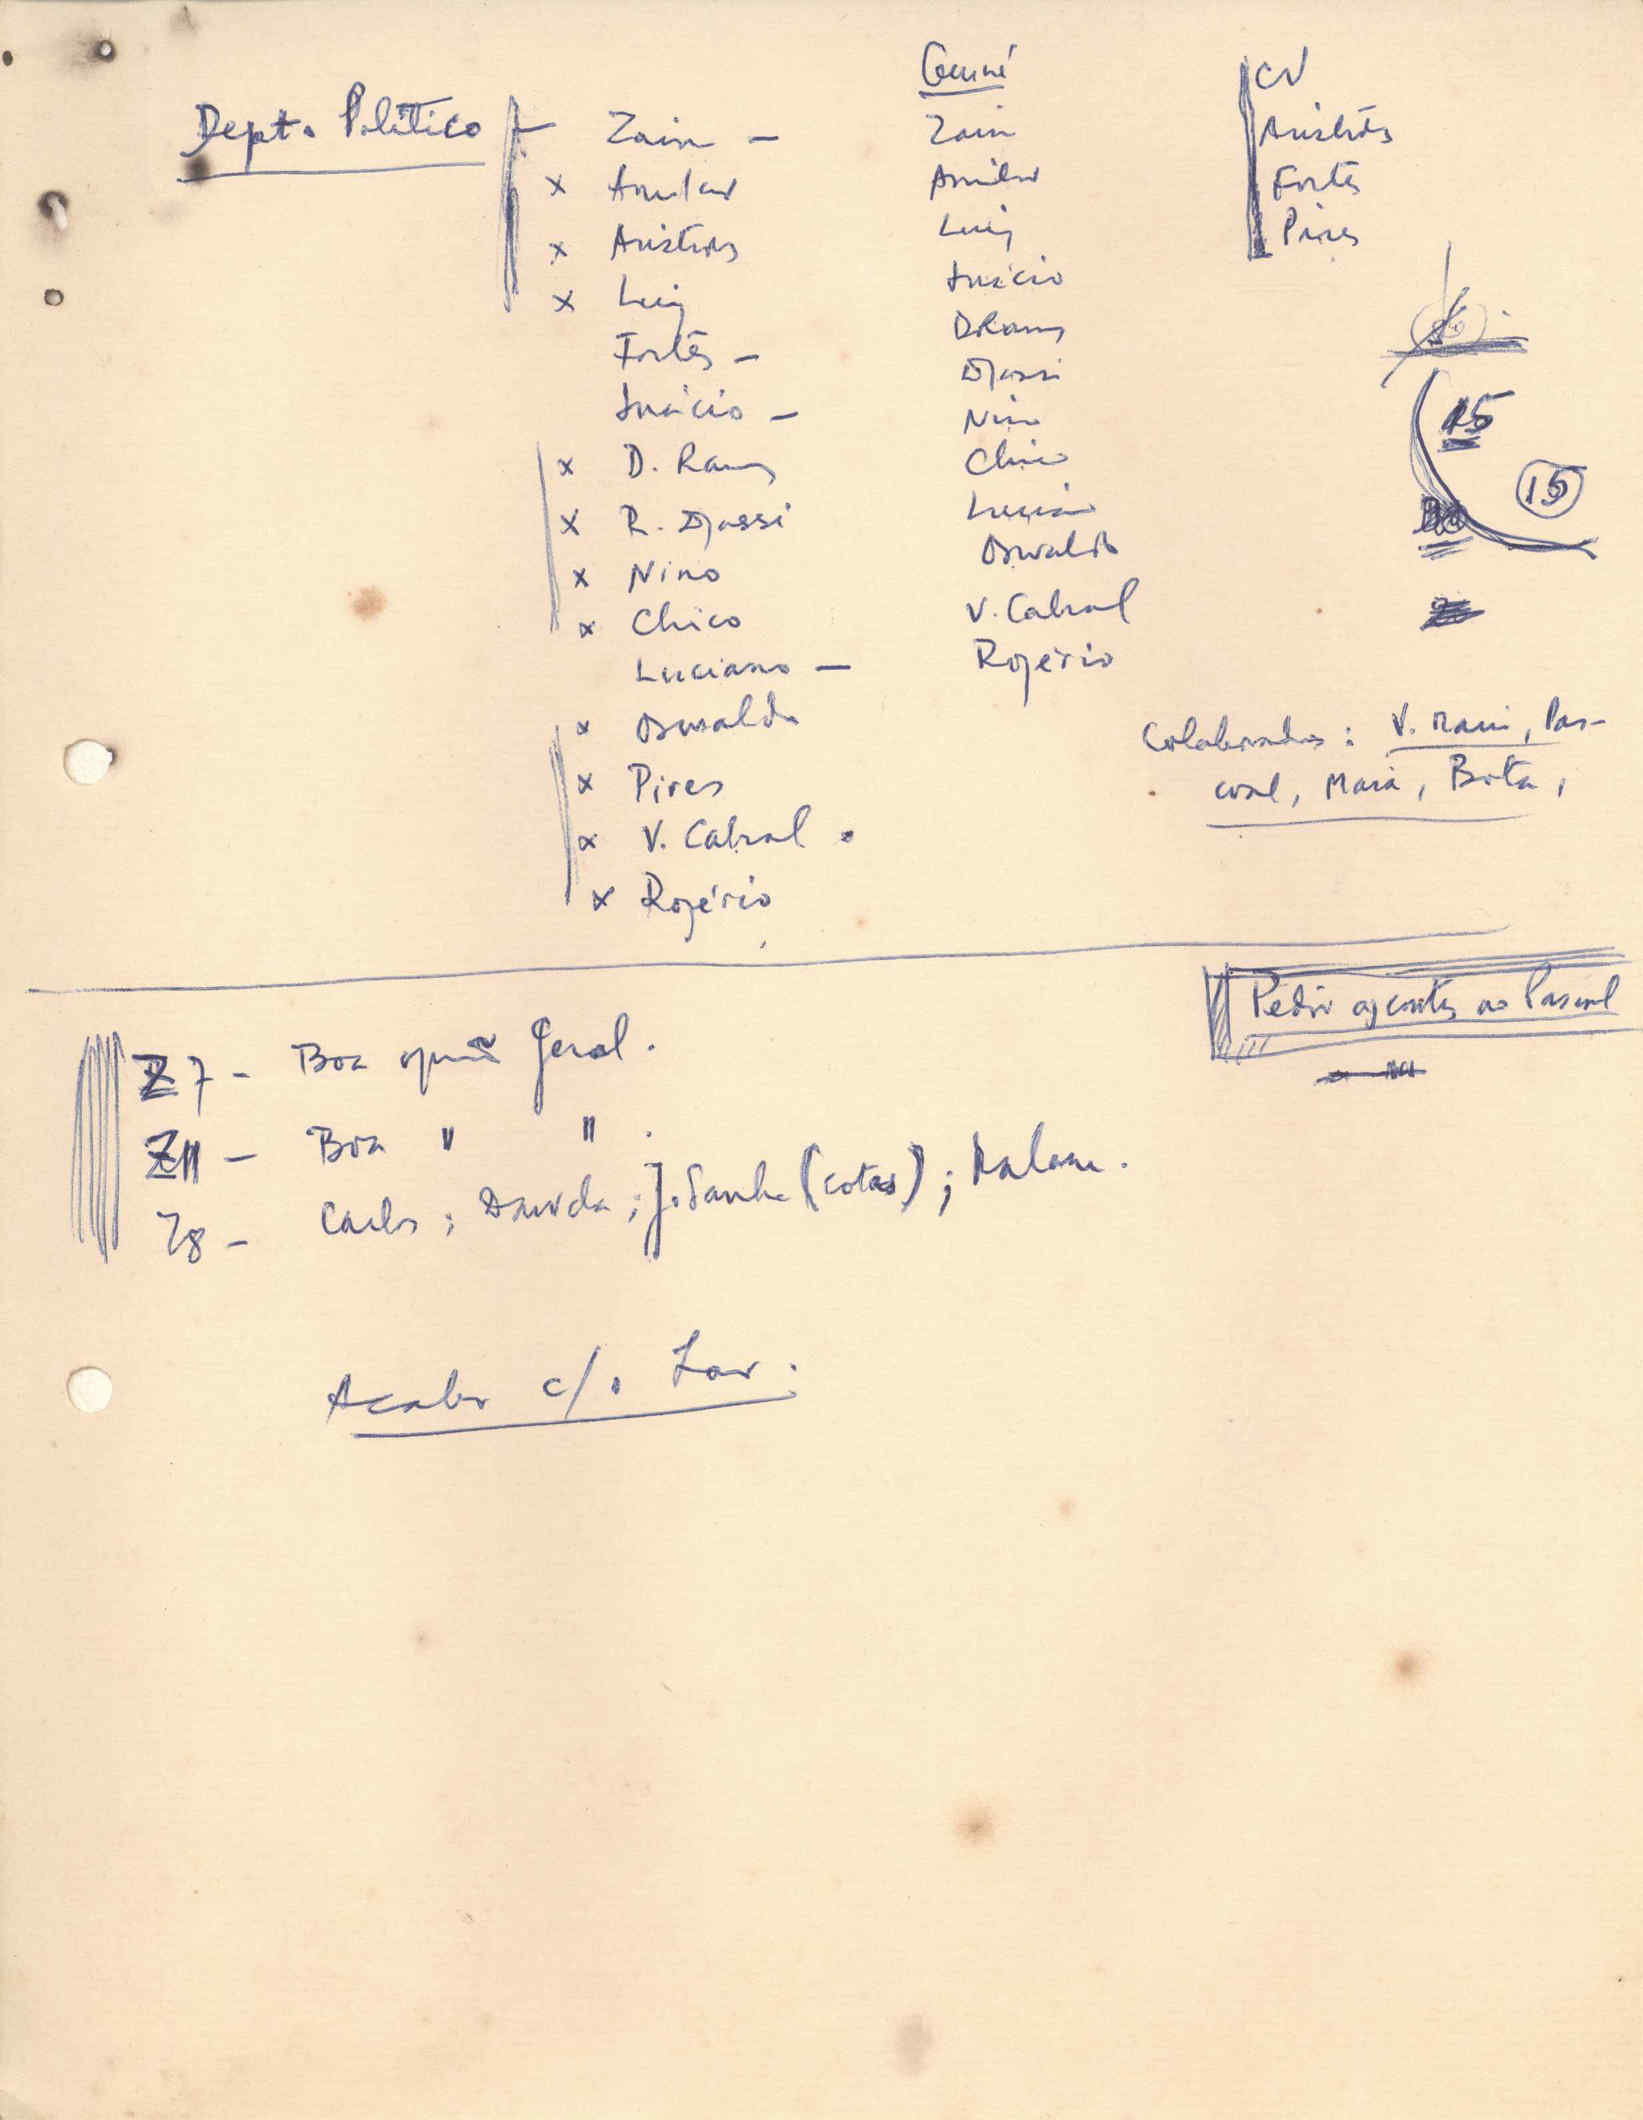 Dept. Político
Zain -
x Amilcar
x Aristides
x Luiz
Fortes -
Inácio -
x D. Ramos
x R. Djassi
x Nino
x Chico
Luciano -
x Oswaldo
x Pires
x V. Cabral .
x Rogério
Guiné
Zain
Amilcar
Luiz
Inácio
D Ramos
Djassi
Nino
Chico
Luciano
Oswaldo
V. Cabral
Rogério
CV
Aristides
Fortes
Pires
15
15
Colaboradores : V. Mané, Pas-
coal, Maria, Bota,
Pedir agentes ao Pascoal
Z7 - Boa opinião Geral.
Z11 - Boa " " .
Z8 - Carlos ; ; J. Sanha (cotas) ; Malam.
Acabar c/.